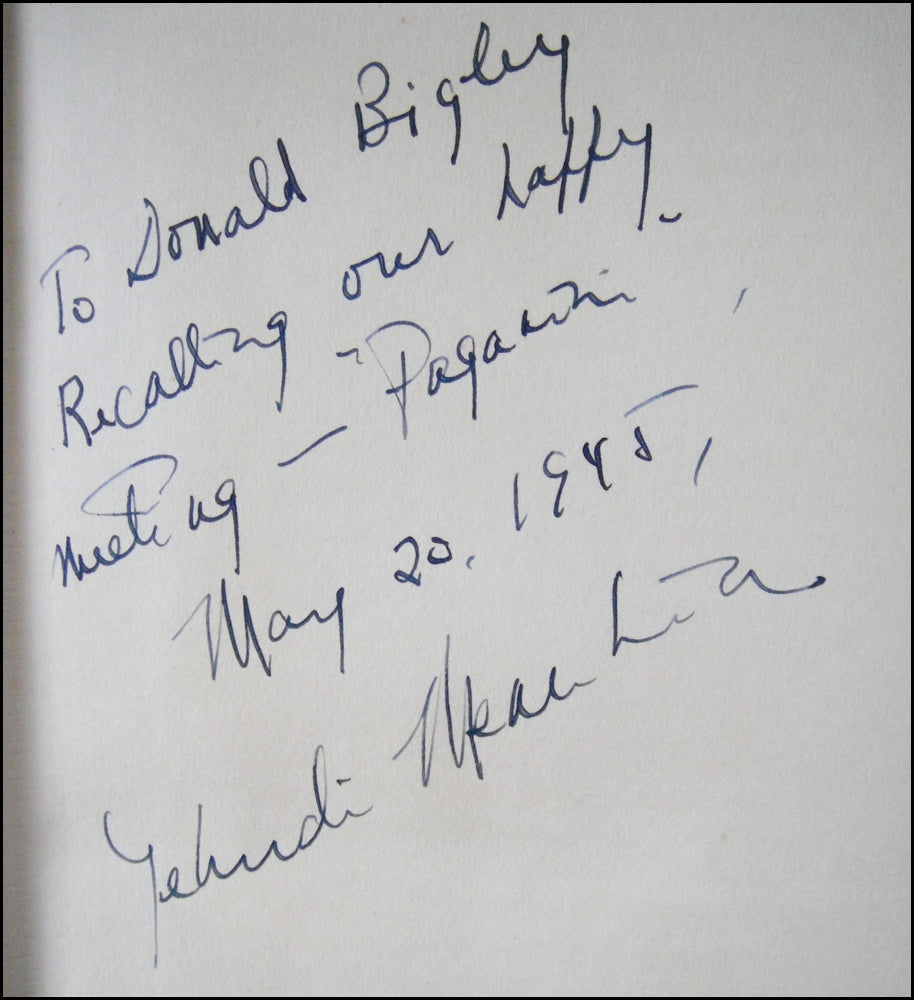 To Donald Bigley
Recalling our happy
meeting — "Paganini"
May 20, 1945,
Yehudi Menuhin